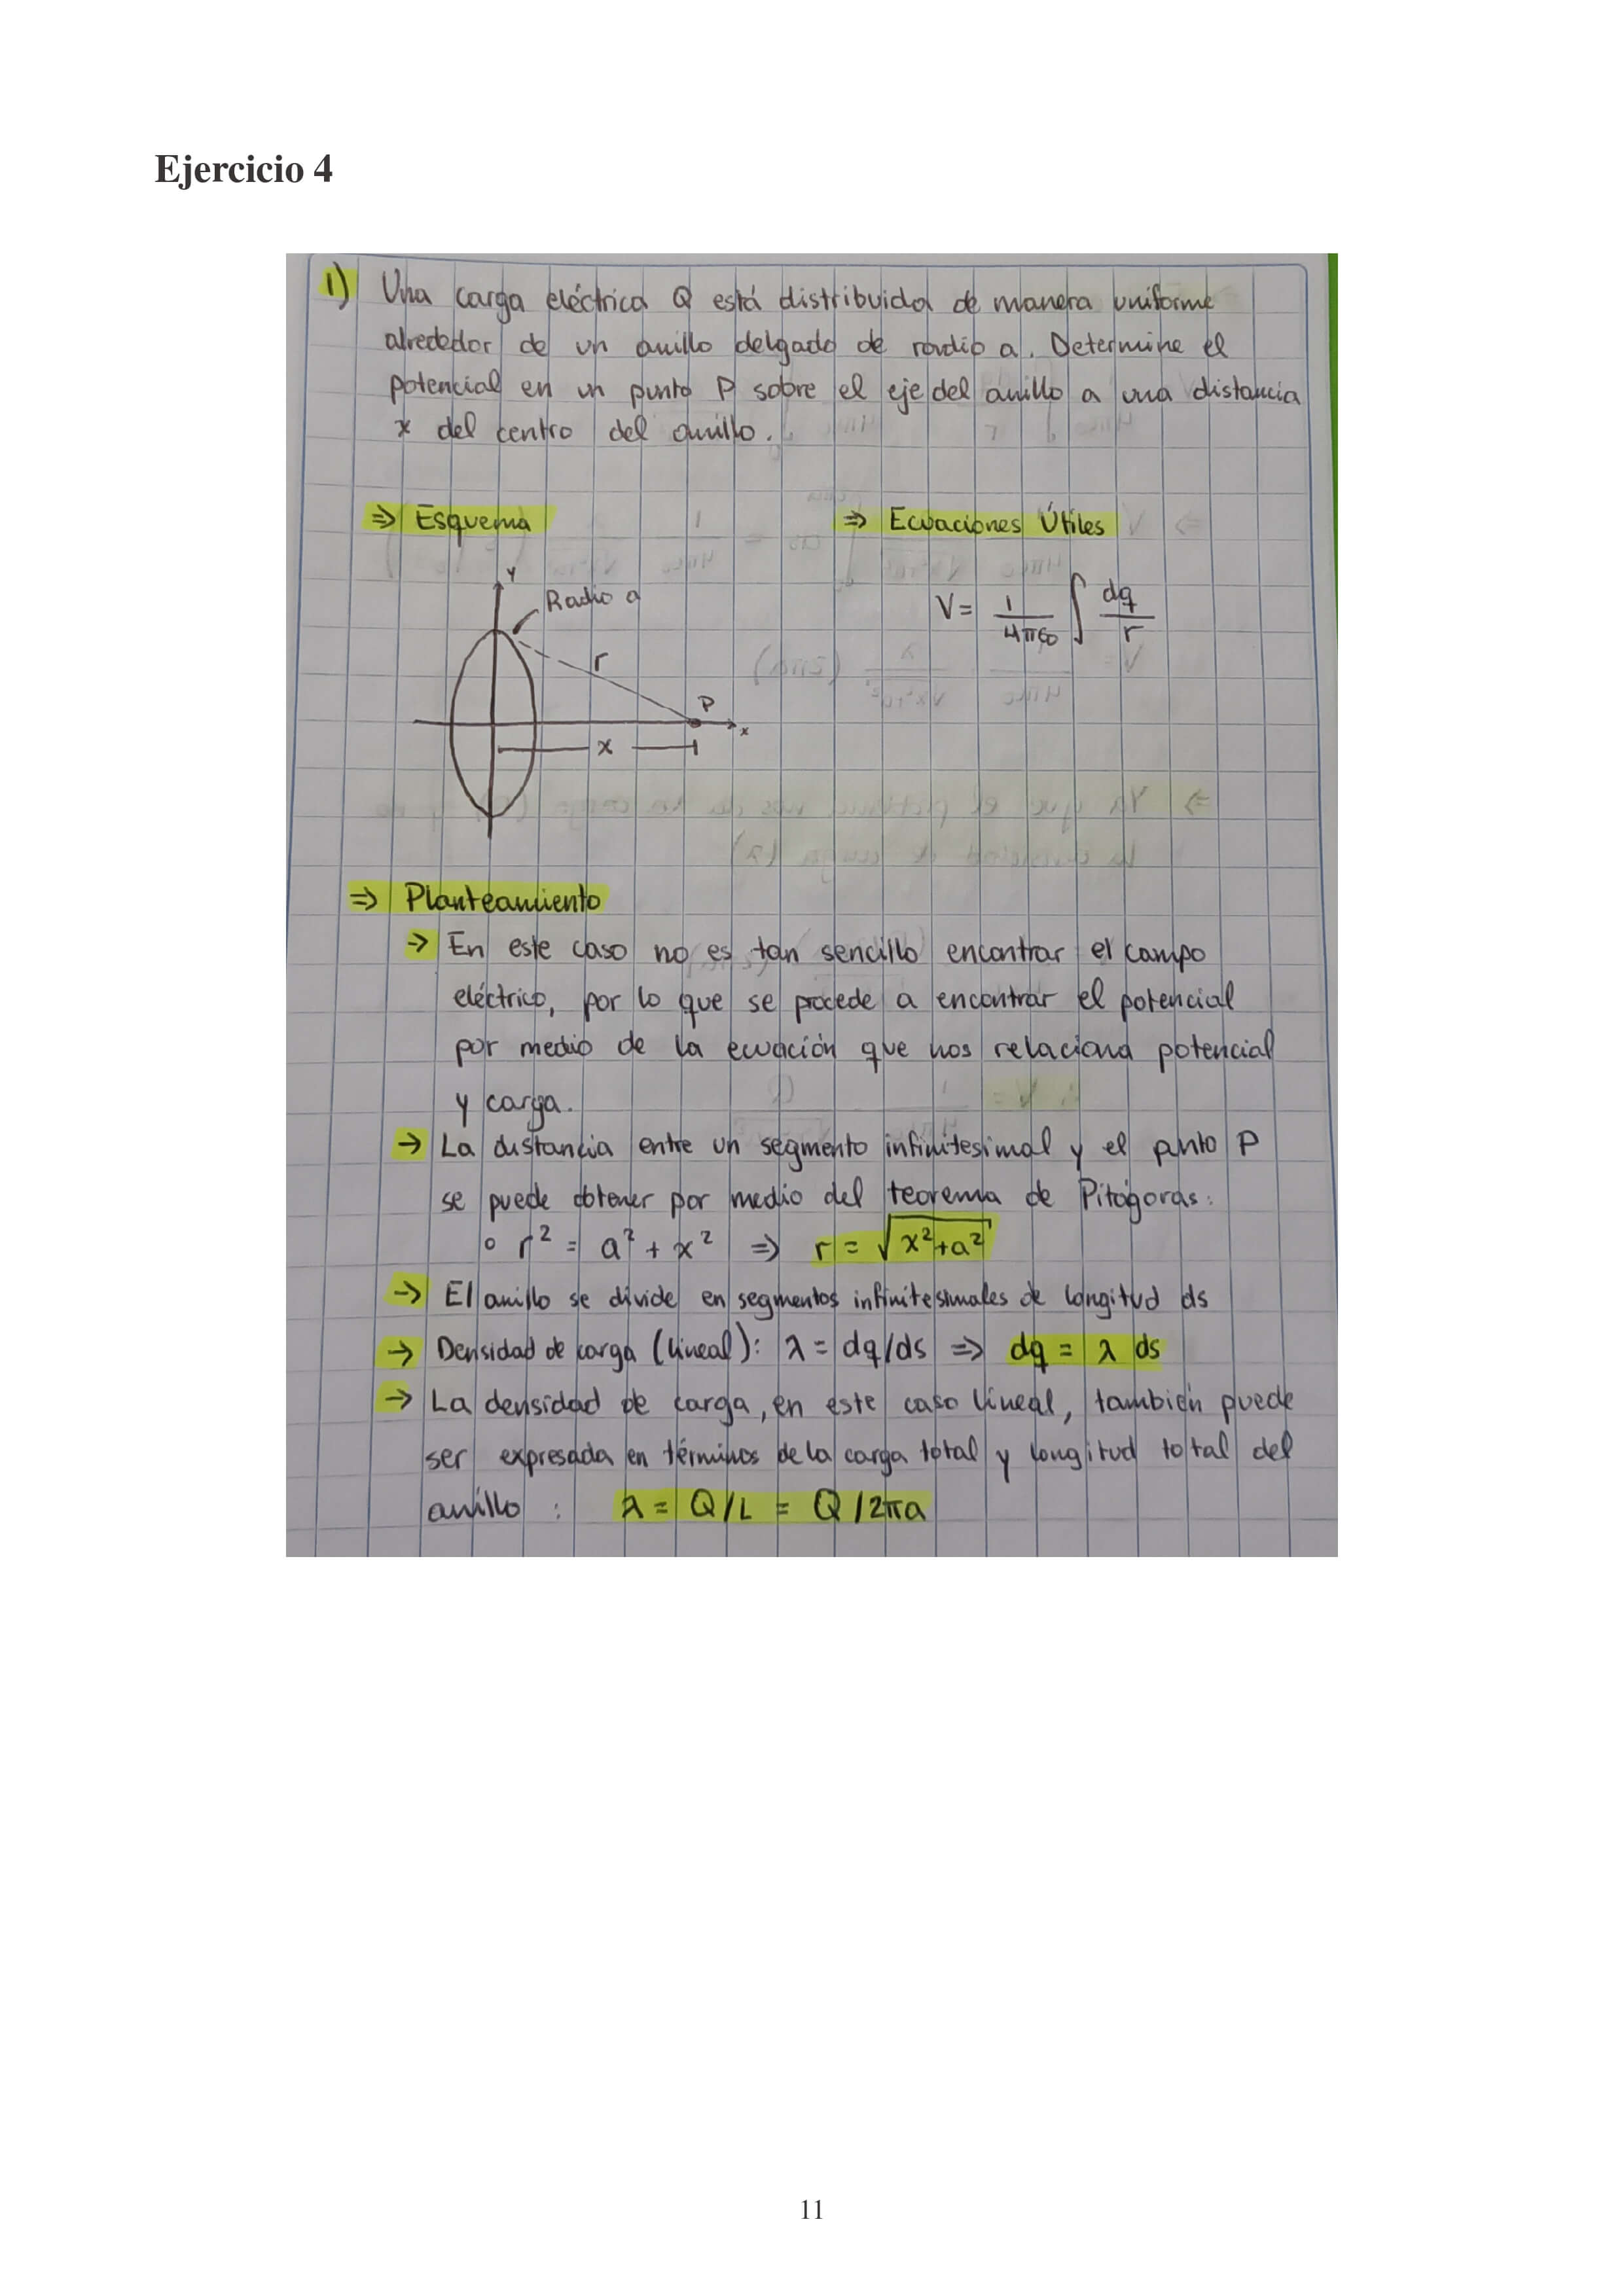 Ejercicio 4
1) Una carga eléctrica Q está distribuida de manera uniforme
alrededor de un anillo delgado de radio a. Determine el
potencial en un punto P sobre el eje del anillo a una distancia
x del centro del anillo.
⇒ Esquema
⇒ Ecuaciones Útiles
y
Radio a
V = 1/4πε0 ∫ dq/r
r
P
x
x
⇒ Planteamiento
→ En este caso no es tan sencillo encontrar el campo
eléctrico, por lo que se procede a encontrar el potencial
por medio de la ecuación que nos relaciona potencial
y carga.
→ La distancia entre un segmento infinitesimal y el punto P
se puede obtener por medio del teorema de Pitágoras:
∘ r² = a² + x² ⇒ r = √(x²+a²)
→ El anillo se divide en segmentos infinitesimales de longitud ds
→ Densidad de carga (lineal): λ = dq/ds ⇒ dq = λ ds
→ La densidad de carga, en este caso lineal, también puede
ser expresada en términos de la carga total y longitud total del
anillo : λ = Q/L = Q/2πa
11